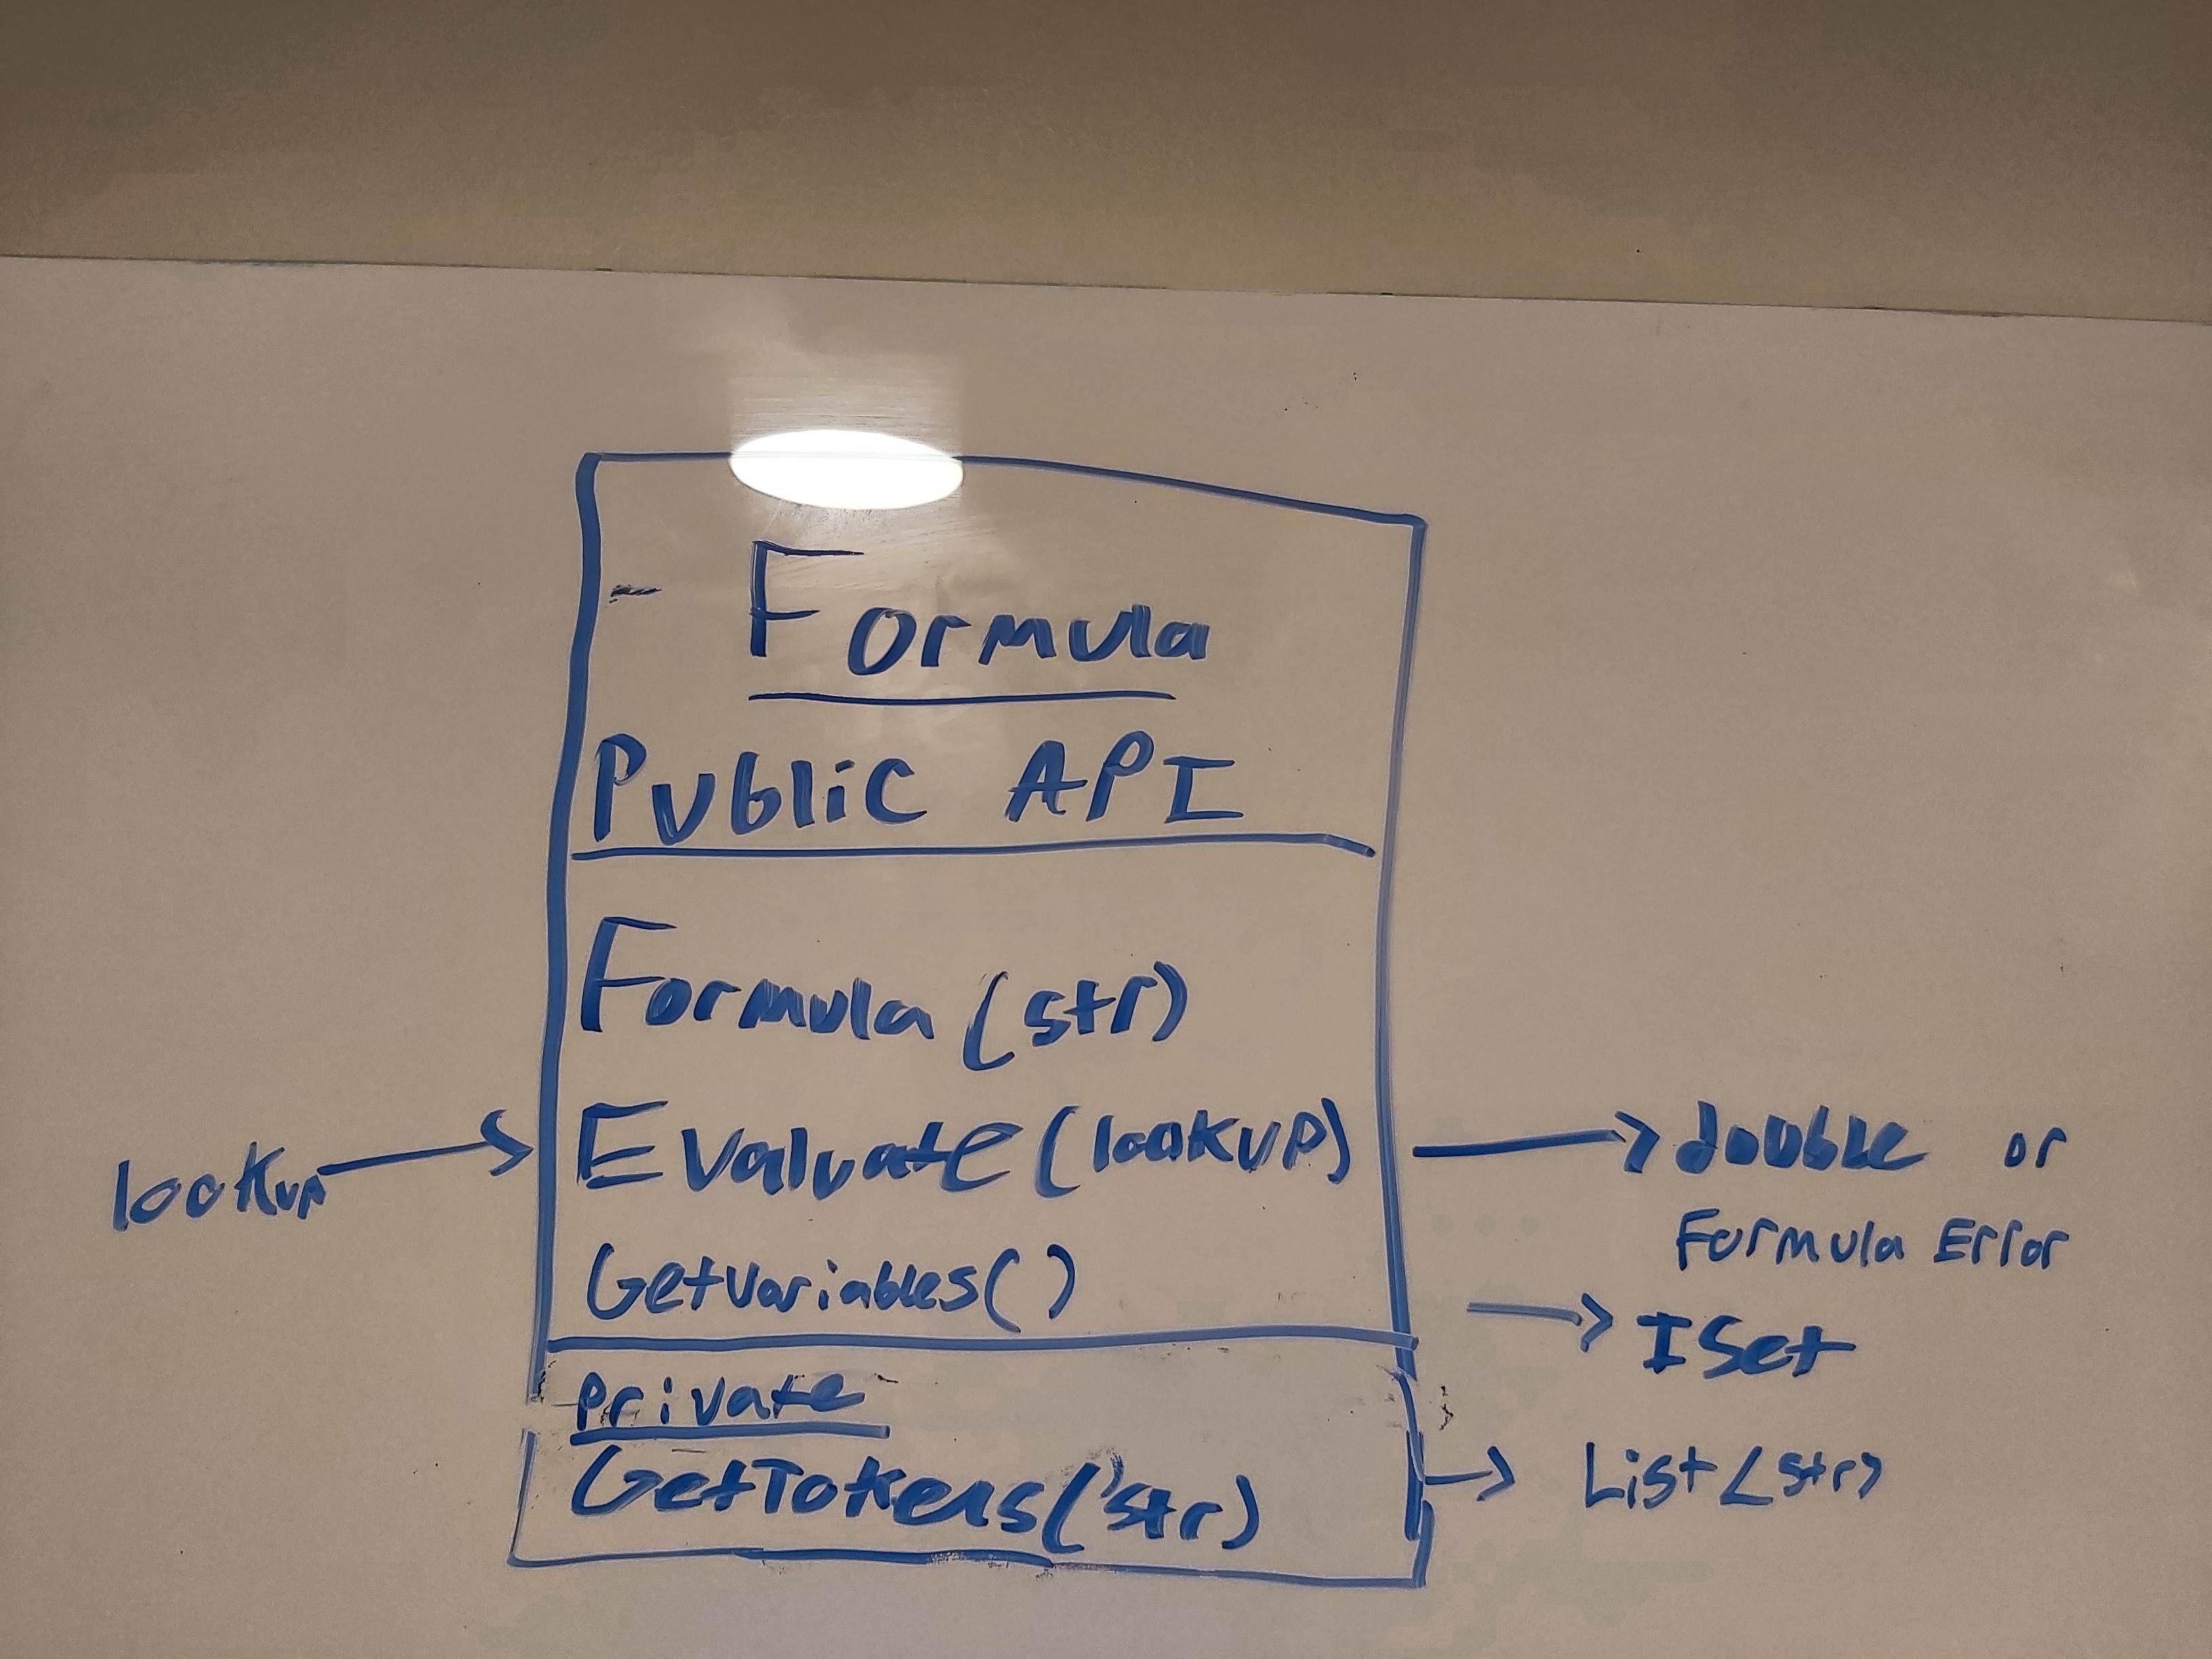 Formula
Public API
Formula (str)
lookup
Evaluate (lookup)
double or
Formula Error
GetVariables()
ISet
private
GetTokens('str)
List<str>